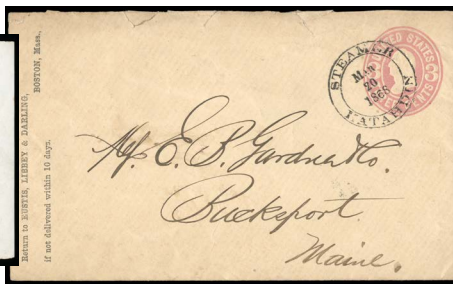 Return to EUSTIS, LIBBEY & DARLING,
BOSTON, Mass.,
if not delivered within 10 days.
STEAMER
MAY
20
1868
KATAHDIN
UNITED STATES
CENTS
E. B. Gardner & Co.
Bucksport.
Maine.